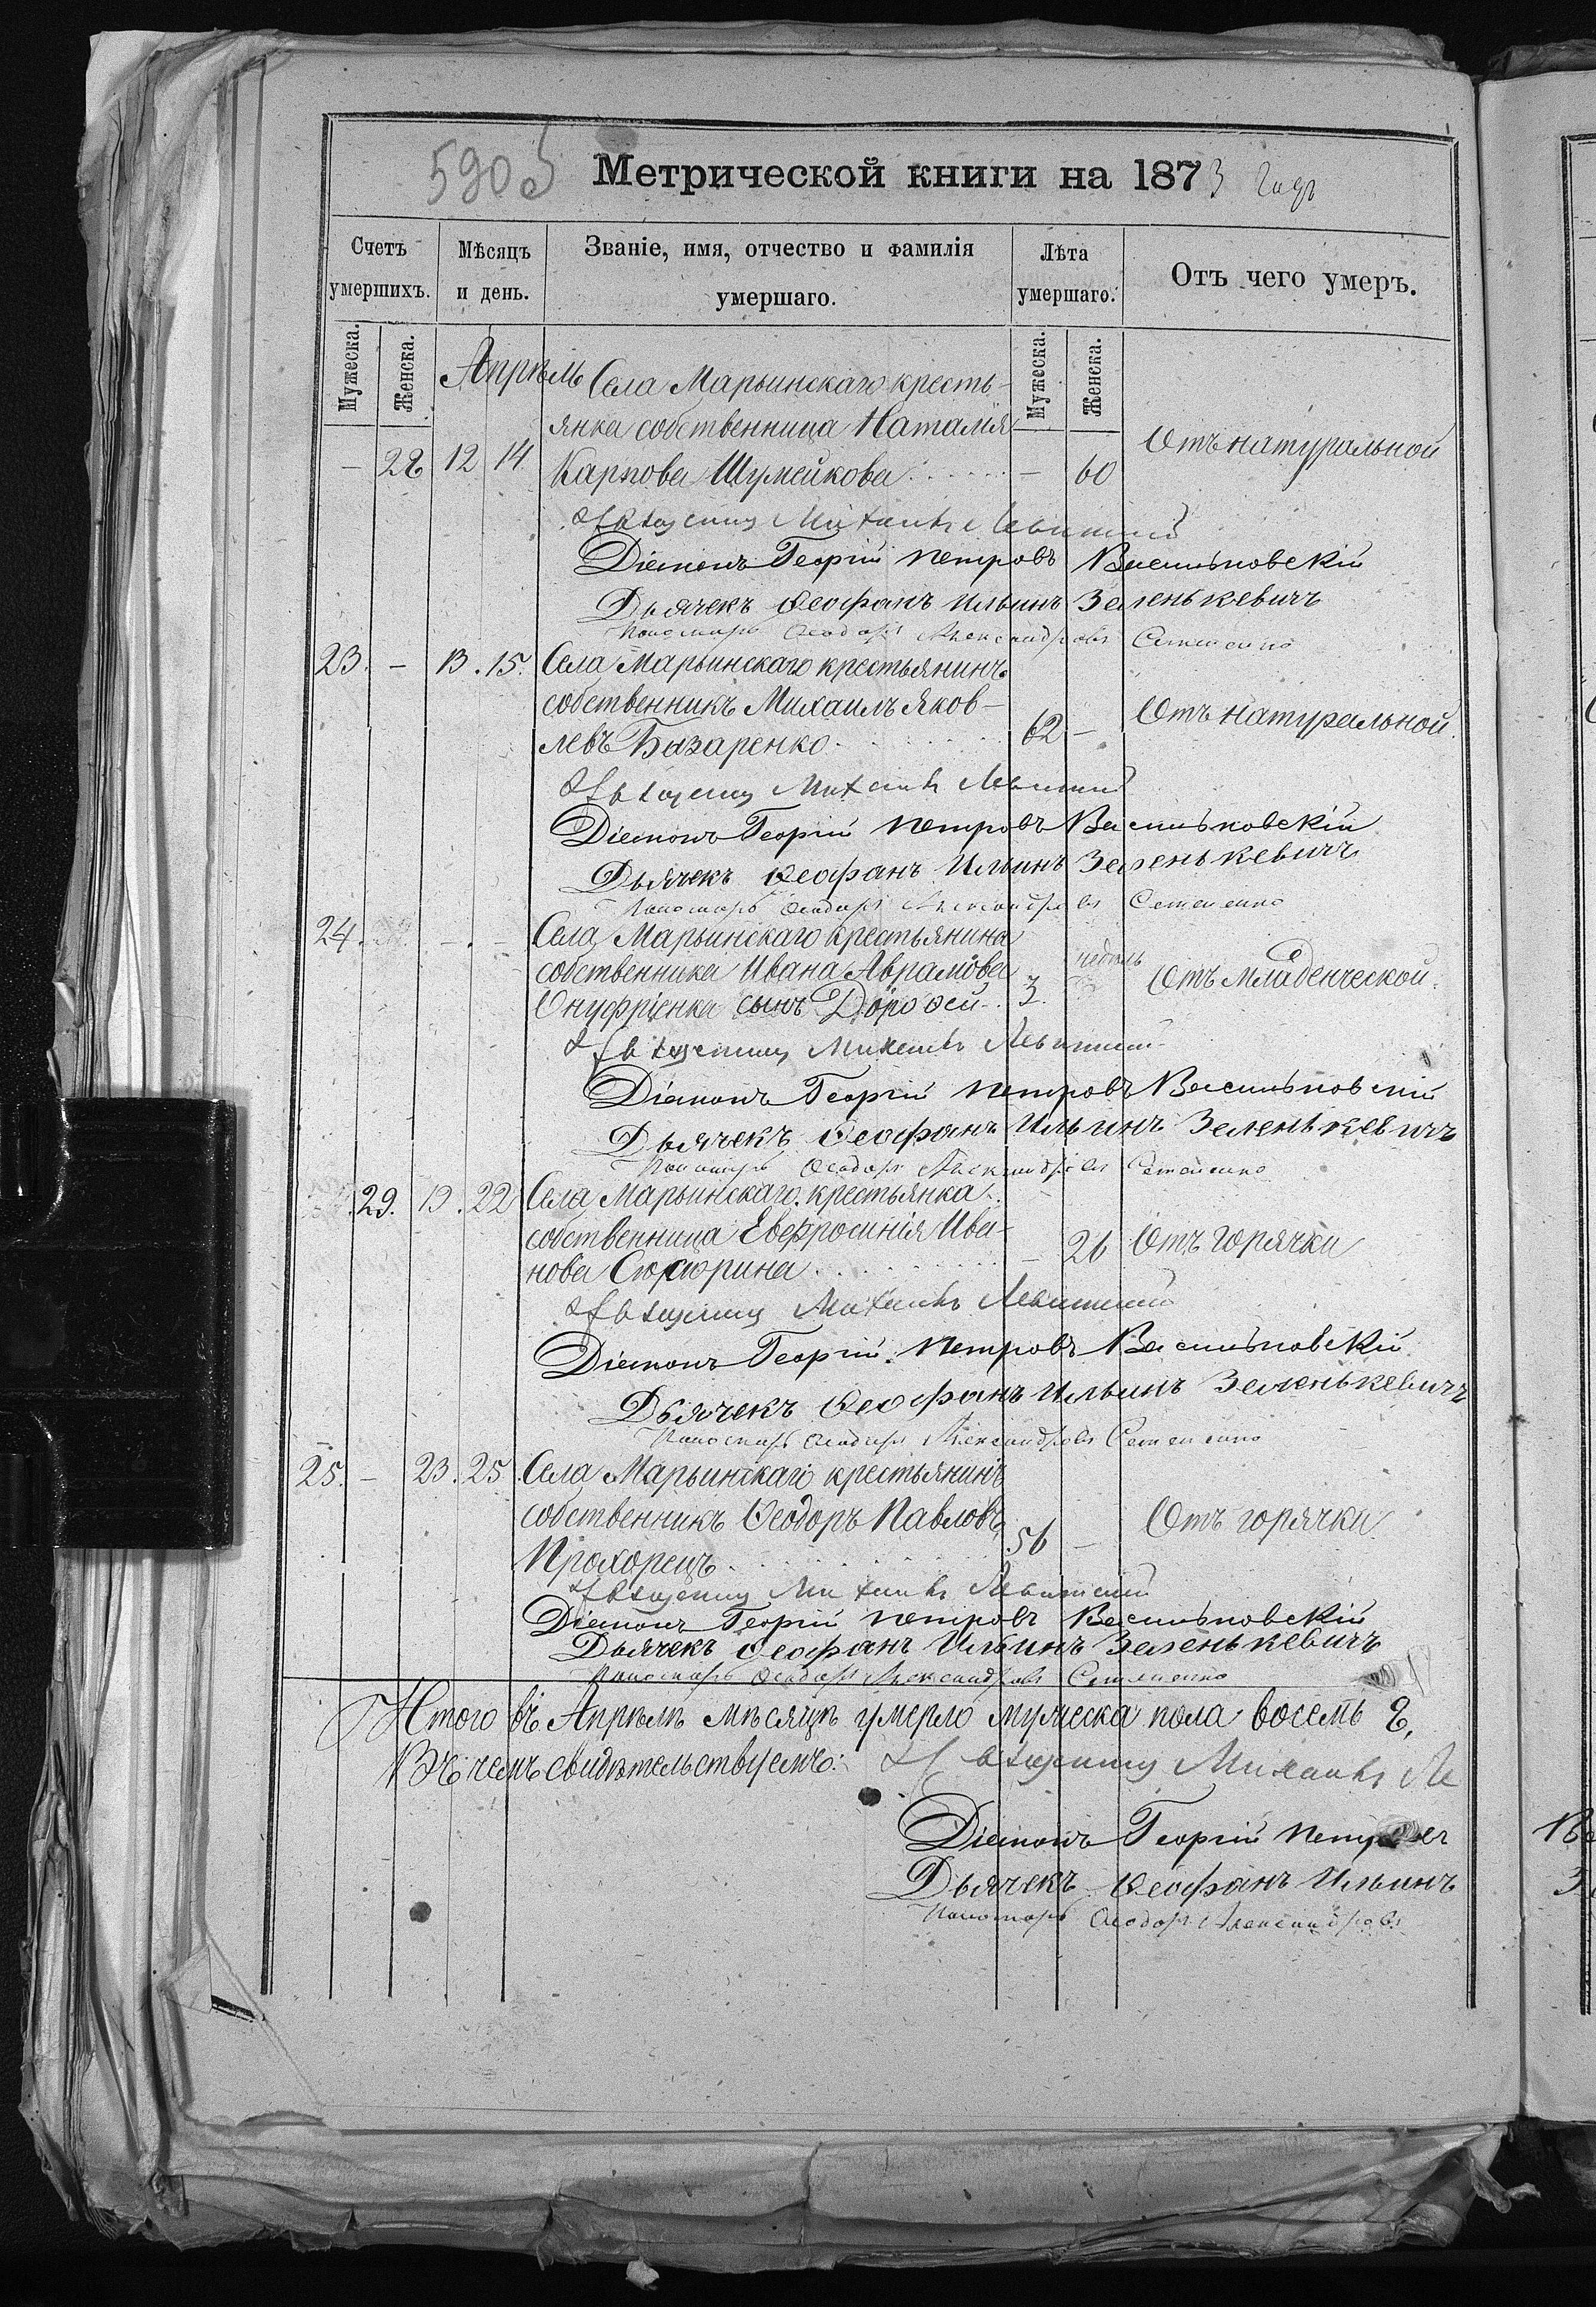 590 об
Метрической книги на 1873 годъ
Счетъ умершихъ.
Мѣсяцъ и день.
Званіе, имя, отчество и фамилія умершаго.
Лѣта умершаго.
Отъ чего умеръ.
Мужеска. Женска.
Мужеска. Женска.
Апрѣль Села Марьинскаго кресть-
янка собственница Наталія
– 28 12 14 Карпова Шумейкова – 60 Отъ натуральной
Священникъ Михаилъ Левитскій
Діаконъ Георгій Петровъ Васильковскій
Дьячекъ Ѳеофанъ Ильинъ Зеленькевичъ
Пономарь Ѳеодоръ Александровъ
23. – 13. 15. Села Марьинскаго крестьянинъ
собственникъ Михаилъ Яков-
левъ Базаренко 62 – Отъ натуральной.
Священникъ Михаилъ Левитскій
Діаконъ Георгій Петровъ Васильковскій
Дьячекъ Ѳеофанъ Ильинъ Зеленькевичъ
Пономарь Ѳеодоръ Александровъ
24. – . – Села Марьинскаго крестьянина
собственника Ивана Аврамова недѣль
Онуфріенка сынъ Дороѳей 3. Отъ младенческой.
Священникъ Михаилъ Левитскій
Діаконъ Георгій Петровъ Васильковскій
Дьячекъ Ѳеофанъ Ильинъ Зеленькевичъ
Пономарь Ѳеодоръ Александровъ
29. 19. 22 Села Марьинскаго крестьянка
собственница Евфросинія Ива-
нова – 26 Отъ горячки
Священникъ Михаилъ Левитскій
Діаконъ Георгій Петровъ Васильковскій
Дьячекъ Ѳеофанъ Ильинъ Зеленькевичъ
Пономарь Ѳеодоръ Александровъ
25. – 23. 25. Села Марьинскаго крестьянинъ
собственникъ Ѳеодоръ Павловъ
Прохорецъ 56 – Отъ горячки
Священникъ Михаилъ Левитскій
Діаконъ Георгій Петровъ Васильковскій
Дьячекъ Ѳеофанъ Ильинъ Зеленькевичъ
Пономарь Ѳеодоръ Александровъ
Итого въ Апрѣлѣ мѣсяцѣ умерло мужеска пола восемь 8,
Въ чемъ свидѣтельствуемъ: Священникъ Михаилъ Ле
Діаконъ Георгій Петровъ
Дьячекъ Ѳеофанъ Ильинъ
Пономарь Ѳеодоръ Александровъ